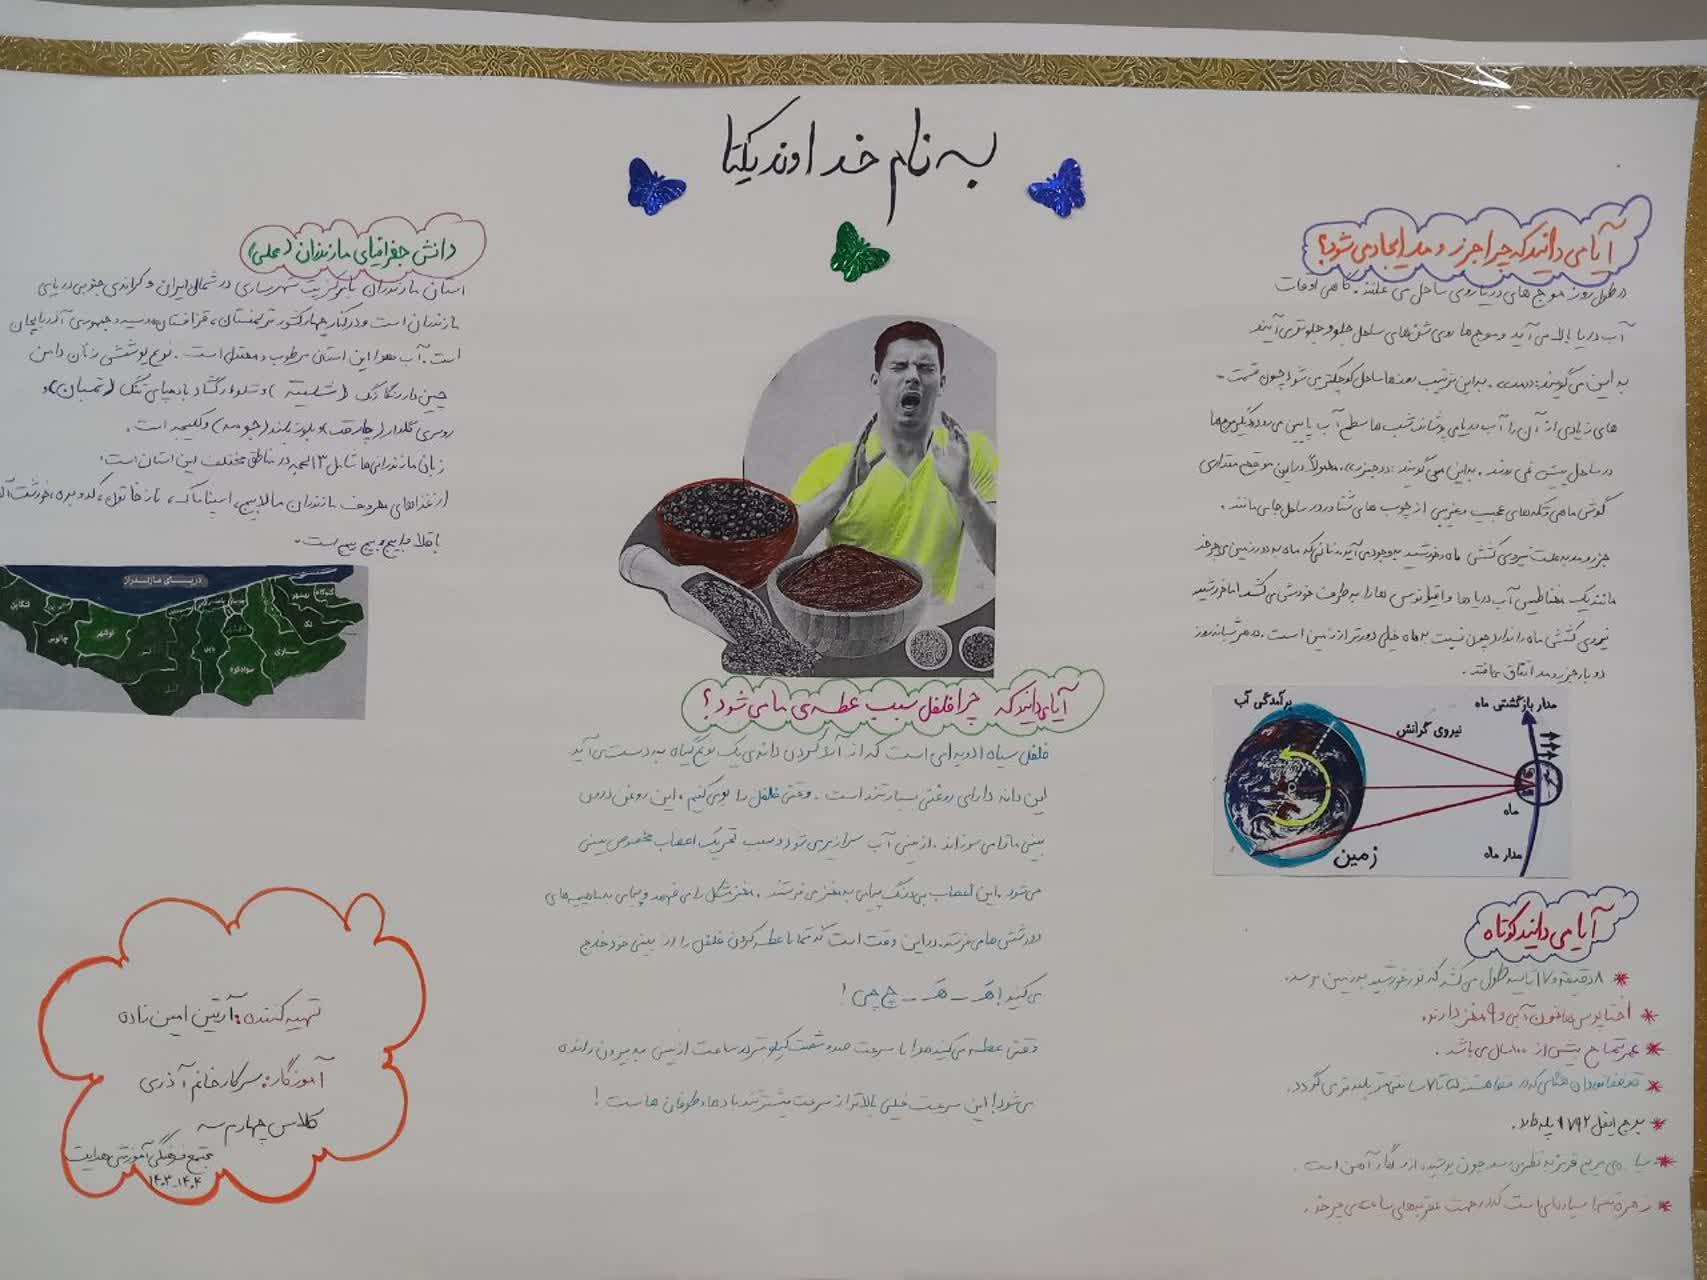 به نام خداوند یکتا
آیا می دانید که چرا جزر و مد ایجاد می شود؟
در طول روز موج های دریا روی ساحل می غلتند. گاهی اوقات
آب دریا بالا می آید و موج ها روی شن های ساحل جلو و جلوتر می آیند
به این می گویند: مد. به این ترتیب بعدها ساحل کوچکتر می شود چون قسمت
های زیادی از آن را آب دریا می پوشاند شب ها سطح آب پایین می رود دیگر موج ها
در ساحل پیش نمی روند. به این می گویند: جزر. معمولاً در این موقع مقداری
گوش ماهی و تکه های عجیب و غریبی از چوب های شناور در ساحل جا می مانند.
جزر و مد به علت نیروی کشش ماه و خورشید به وجود می آید. زمانی که ماه به دور زمین می چرخد
مانند یک مغناطیس آب دریا ها و اقیانوس ها را به طرف خودش می کشد اما خورشید
نیروی کشش ماه را ندارد چون نسبت به ماه خیلی دورتر از زمین است. در هر شبانه روز
دو بار جزر و مد اتفاق می افتد.
برآمدگی آب
نیروی گرانش
مدار بازگشتی ماه
ماه
مدار ماه
زمین
آیا می دانید کوتاه
* ۸ دقیقه و ۱۷ ثانیه طول می کشد که نور خورشید به زمین برسد.
* اختاپوس ها خون آبی و ۹ مغز دارند.
* عمر تمساح بیش از ۱۰۰ سال می باشد.
* قد فضانوردان هنگامی که در فضا هستند ۵ تا ۷ سانتی متر بلندتر می گردد.
* برج ایفل ۱۷۹۲ پله دارد.
* سیاره ی مریخ قرمز به نظر می رسد چون پوشیده از زنگار آهن است.
* زهره تنها سیاره ای است که در جهت عقربه های ساعت می چرخد.
آیا می دانید که چرا فلفل سبب عطسه ی ما می شود؟
فلفل سیاه ادویه ای است که از آرد کردن دانه ی یک نوع گیاه به دست می آید
این دانه دارای روغنی بسیار تند است. وقتی فلفل را بو می کنیم، این روغن درون
بینی ما را می سوزاند. از بینی آب سرازیر می شود و سبب تحریک اعصاب مخصوص بینی
می شود. این اعصاب بی درنگ پیامی به مغز می فرستند. مغز مشکل را می فهمد و پیامی به ماهیچه های
دور شش ها می فرستد. در این وقت است که شما با عطسه کردن فلفل را از بینی خود خارج
می کنید! هَـ - هَـ - چ چی!
وقتی عطسه می کنید هوا با سرعت صد و شصت کیلومتر در ساعت از بینی به بیرون رانده
می شود! این سرعت خیلی بالاتر از سرعت بیشتر تندبادها و طوفان ها است!
دانش جغرافیای مازندران (محلی)
استان مازندران با مرکزیت شهر ساری در شمال ایران و کرانه ی جنوبی دریای
مازندران است و در کنار چهار کشور ترکمنستان، قزاقستان، روسیه و جمهوری آذربایجان
است. آب و هوا این استان مرطوب و معتدل است. نوع پوشش زنان دامن
چین دار رنگارنگ (شلیته) و شلوار گشاد با دمپای تنگ (تمبان) و
روسری گلدار (چارقد) و بلوز بلند (جومه) و کلیجه است.
زبان مازندرانی ها شامل ۱۳ لهجه در مناطق مختلف این استان است.
از غذاهای معروف مازندران مالابیج، اسپناساک، ناز خاتون، کدو بره، خورشت آلو
باقلا و
دریای مازندران
تنکابن
چالوس
نوشهر
نور
آمل
بابل
سوادکوه
ساری
نکا
بهشهر
گلوگاه
تهیه کننده: آرتین امین زاده
آموزگار: سرکار خانم آذری
کلاس چهارم سه
مجتمع فرهنگی آموزشی هدایت
۱۴۰۳-۱۴۰۴